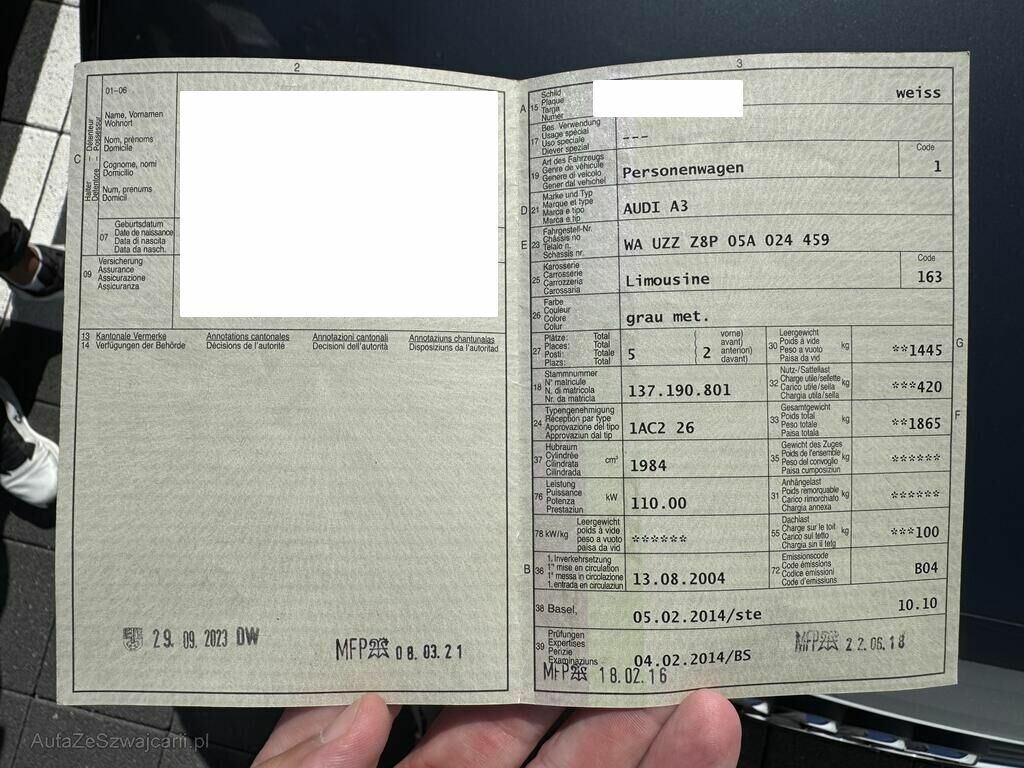 2
01–06
Halter
Détenteur
Detentore
Possessur
C
Name, Vornamen
Wohnort
Nom, prénoms
Domicile
Cognome, nomi
Domicilio
Num, prenums
Domicil
07
Geburtsdatum
Date de naissance
Data di nascita
Data da nasch.
09
Versicherung
Assurance
Assicurazione
Assicuranza
13 Kantonale Vermerke Annotations cantonales Annotazioni cantonali Annotaziuns chantunalas
14 Verfügungen der Behörde Décisions de l'autorité Decisioni dell'autorità Disposiziuns da l'autoritad
29. 09. 2023 DW
MFP 08.03.21
3
A 15
Schild
Plaque
Targa
Numer
weiss
17
Bes. Verwendung
Usage spécial
Uso speciale
Diever spezial
---
19
Art des Fahrzeugs
Genre de véhicule
Genere di veicolo
Gener dal vehichel
Personenwagen
Code
1
D 21
Marke und Typ
Marque et type
Marca e tipo
Marca e tip
AUDI A3
E 23
Fahrgestell-Nr.
Châssis no
Telaio n.
Schassis nr.
WA UZZ Z8P 05A 024 459
25
Karosserie
Carrosserie
Carrozzeria
Carossaria
Limousine
Code
163
26
Farbe
Couleur
Colore
Colur
grau met.
27
Plätze: Total
Places: Total
Posti: Totale
Plazs: Total
5
( 2
vorne)
avant)
anteriori)
davant)
30
Leergewicht
Poids à vide
Peso a vuoto
Paisa da vid
kg
**1445
G
18
Stammnummer
N° matricule
N. di matricola
Nr. da matricla
137.190.801
32
Nutz-/Sattellast
Charge utile/sellette
Carico utile/sella
Chargia utila/sella
kg
***420
24
Typengenehmigung
Réception par type
Approvazione del tipo
Approvaziun dal tip
1AC2 26
33
Gesamtgewicht
Poids total
Peso totale
Paisa totala
kg
**1865
F
37
Hubraum
Cylindrée
Cilindrata
Cilindrada
cm³
1984
35
Gewicht des Zuges
Poids de l'ensemble
Peso del convoglio
Paisa cumposiziun
kg
******
76
Leistung
Puissance
Potenza
Prestaziun
kW
110.00
31
Anhängelast
Poids remorquable
Carico rimorchiato
Chargia annexa
kg
******
78 kW/kg
Leergewicht
poids à vide
peso a vuoto
paisa da vid
******
55
Dachlast
Charge sur le toit
Carico sul tetto
Chargia sin il tetg
kg
***100
B 36
1. Inverkehrsetzung
1re mise en circulation
1a messa in circolazione
1. entrada en circulaziun
13.08.2004
72
Emissionscode
Code émissions
Codice emissioni
Code d'emissiuns
B04
38 Basel,
05.02.2014/ste
10.10
39
Prüfungen
Expertises
Perizie
Examinaziuns
04.02.2014/BS
MFP 22.06.18
MFP 18.02.16
AutaZeSzwajcarii.pl